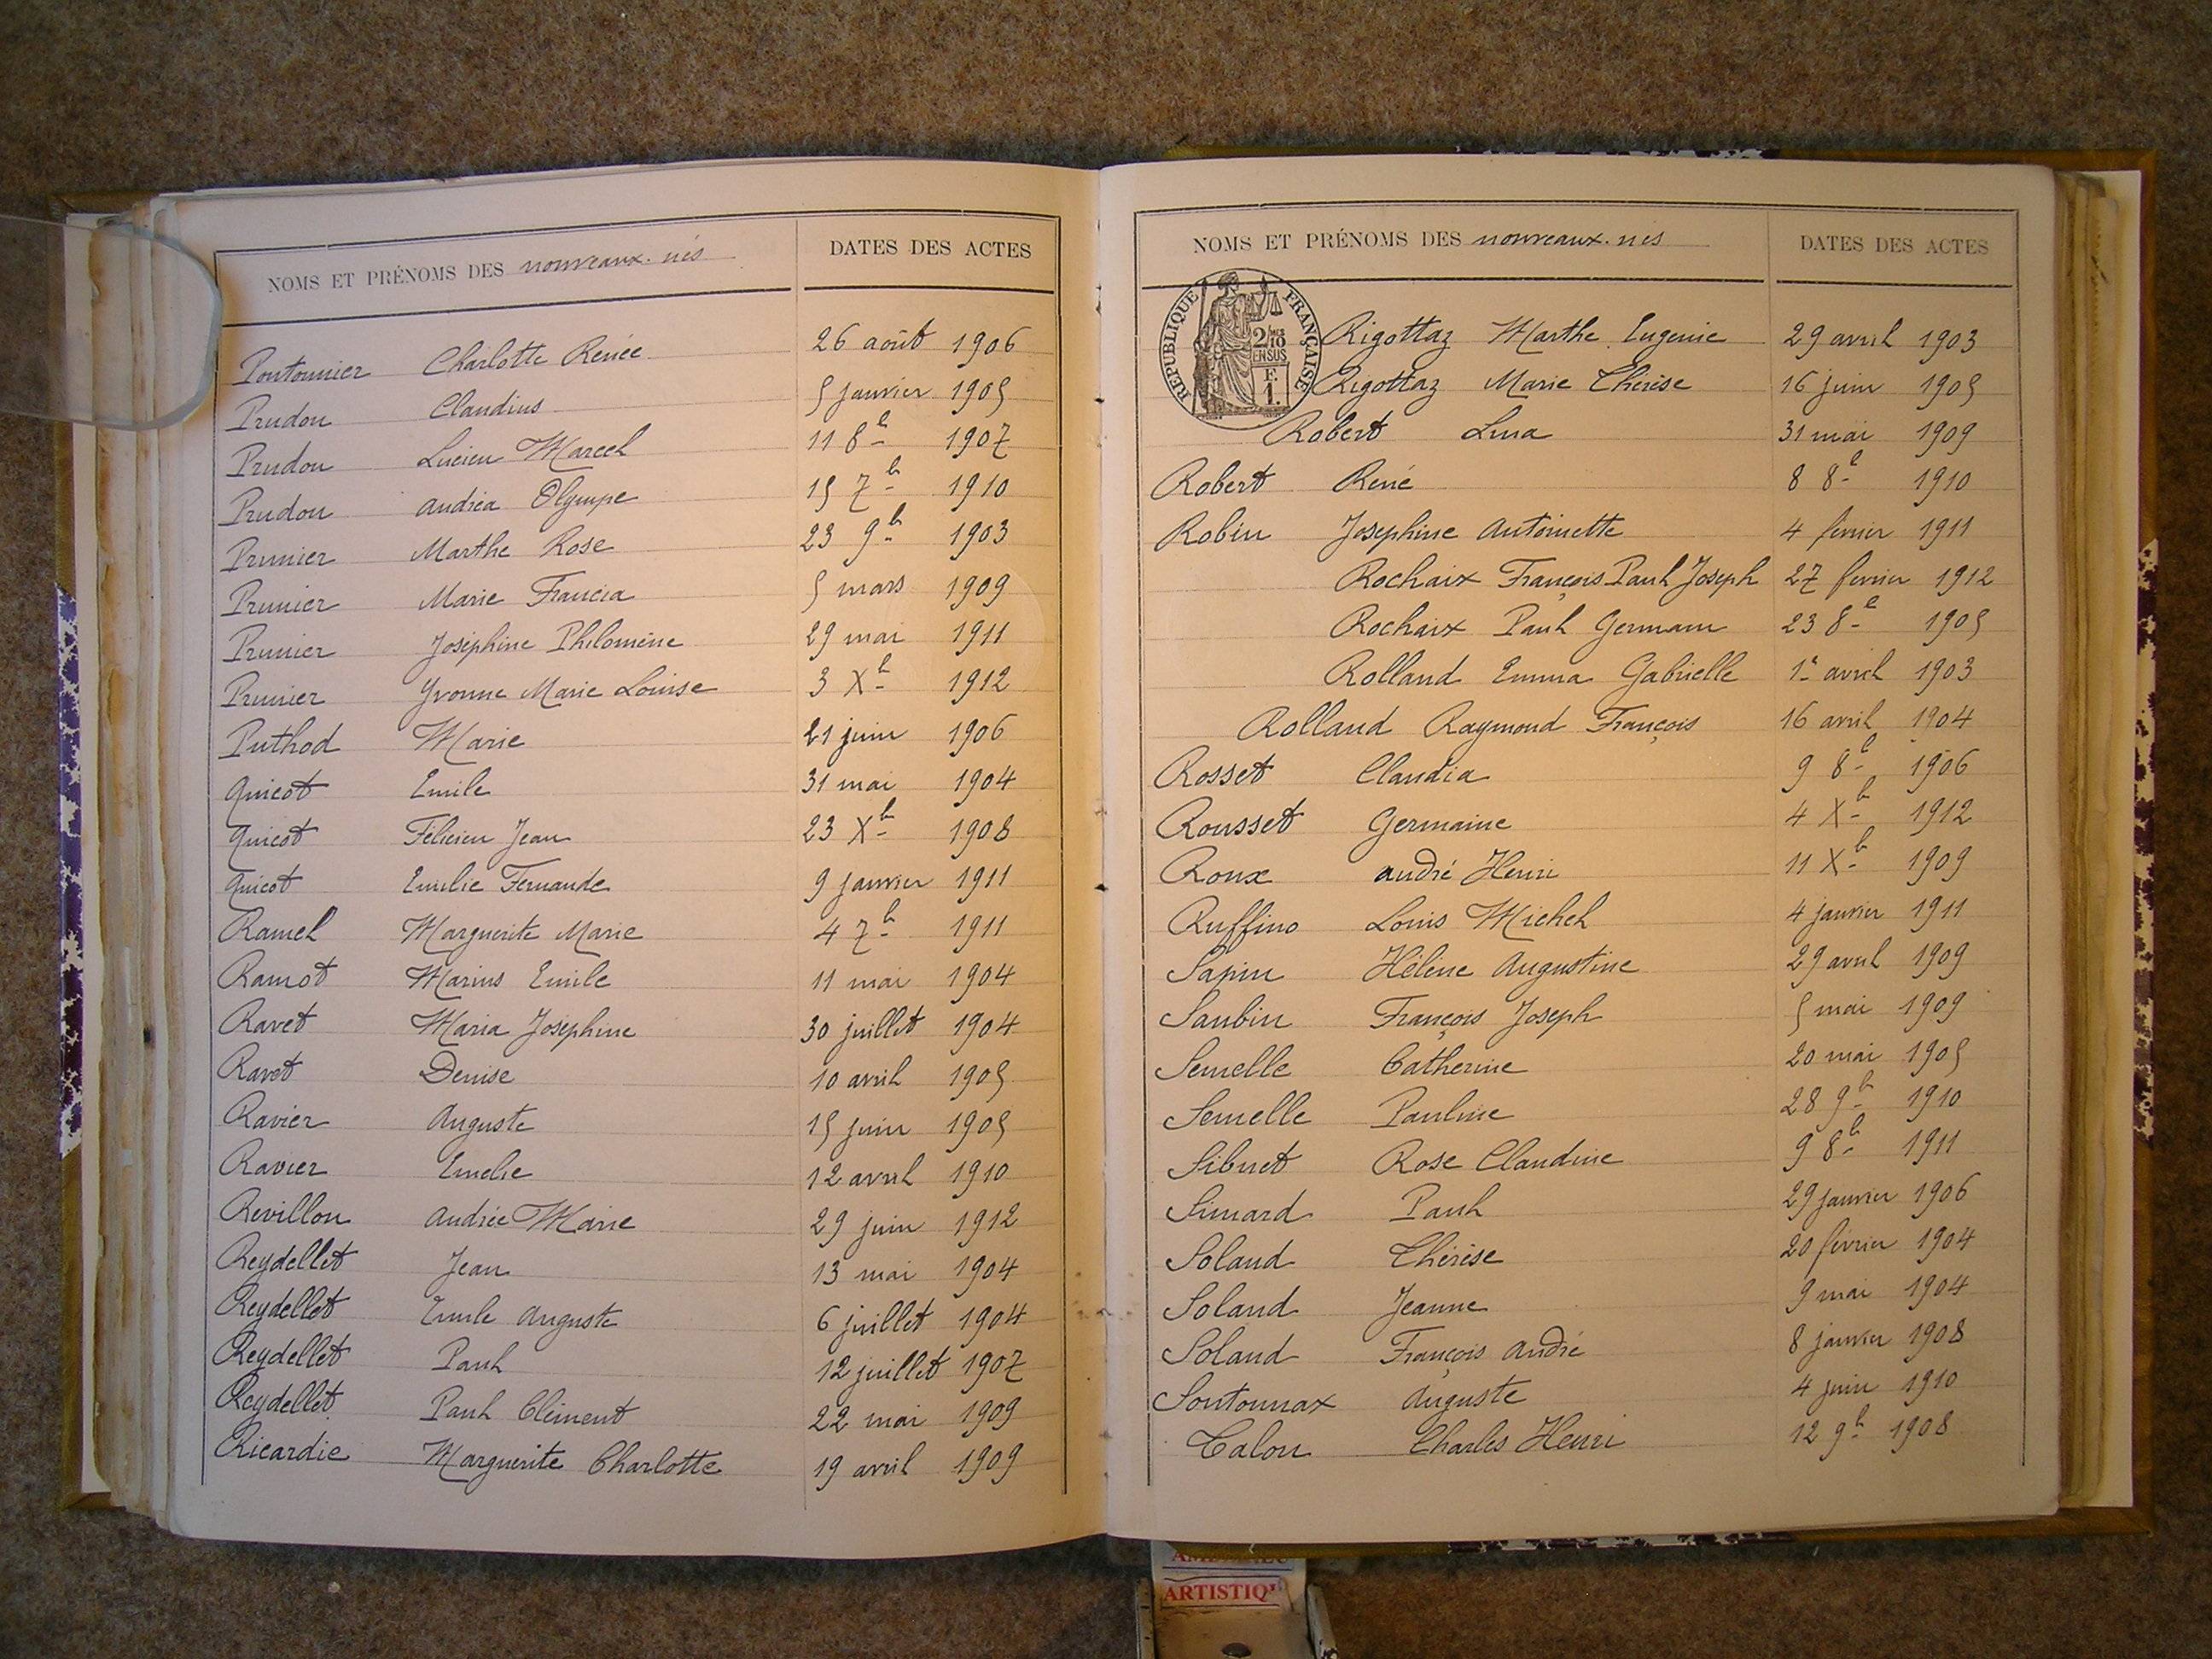 NOMS ET PRÉNOMS DES nouveaux-nés DATES DES ACTES
Pontonnier Charlotte Renée 26 août 1906
Prudon Claudius 5 janvier 1905
Prudon Lucien Marcel 11 8b 1907
Prudon Andréa Olympe 15 7b 1910
Prunier Marthe Rose 23 9b 1903
Prunier Marie Francia 5 mars 1909
Prunier Joséphine Philomène 29 mai 1911
Prunier Yvonne Marie Louise 3 Xb 1912
Puthod Marie 21 juin 1906
Quicot Emile 31 mai 1904
Quicot Félicien Jean 23 Xb 1908
Quicot Emilie Fernande 9 janvier 1911
Ramel Marguerite Marie 4 7b 1911
Ramot Marius Emile 11 mai 1904
Ravet Maria Joséphine 30 juillet 1904
Ravet Denise 10 avril 1905
Ravier Auguste 15 juin 1905
Ravier Emelie 12 avril 1910
Revillon Andrée Marie 29 juin 1912
Reydellet Jean 13 mai 1904
Reydellet Emile Auguste 6 juillet 1904
Reydellet Paul 12 juillet 1907
Reydellet Paul Clément 22 mai 1909
Ricardie Marguerite Charlotte 19 avril 1909
NOMS ET PRÉNOMS DES nouveaux-nés DATES DES ACTES
RÉPUBLIQUE FRANÇAISE
2/10
EN SUS
F.
1.
Rigottaz Marthe Eugenie 29 avril 1903
Rigottaz Marie Thérèse 16 juin 1905
Robert Lina 31 mai 1909
Robert René 8 8b 1910
Robin Josephine Antoinette 4 février 1911
Rochaix François Paul Joseph 27 fevrier 1912
Rochaix Paul Germain 23 8b 1905
Rolland Emma Gabrielle 1r avril 1903
Rolland Raymond François 16 avril 1904
Rosset Claudia 9 8b 1906
Rousset Germaine 4 Xb 1912
Roux André Henri 11 Xb 1909
Ruffino Louis Michel 4 janvier 1911
Sapin Hélène Augustine 29 avril 1909
Saubin François Joseph 5 mai 1909
Semelle Catherine 20 mai 1905
Semelle Pauline 28 9b 1910
Sibuet Rose Claudine 9 8b 1911
Simard Paul 29 janvier 1906
Soland Thérèse 20 février 1904
Soland Jeanne 9 mai 1904
Soland François André 8 janvier 1908
Sontonnax Auguste 4 juin 1910
Talon Charles Henri 12 9b 1908
ARTISTIQ